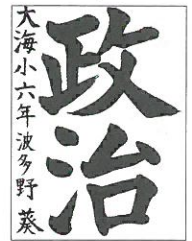 政治
大海小六年波多野葵